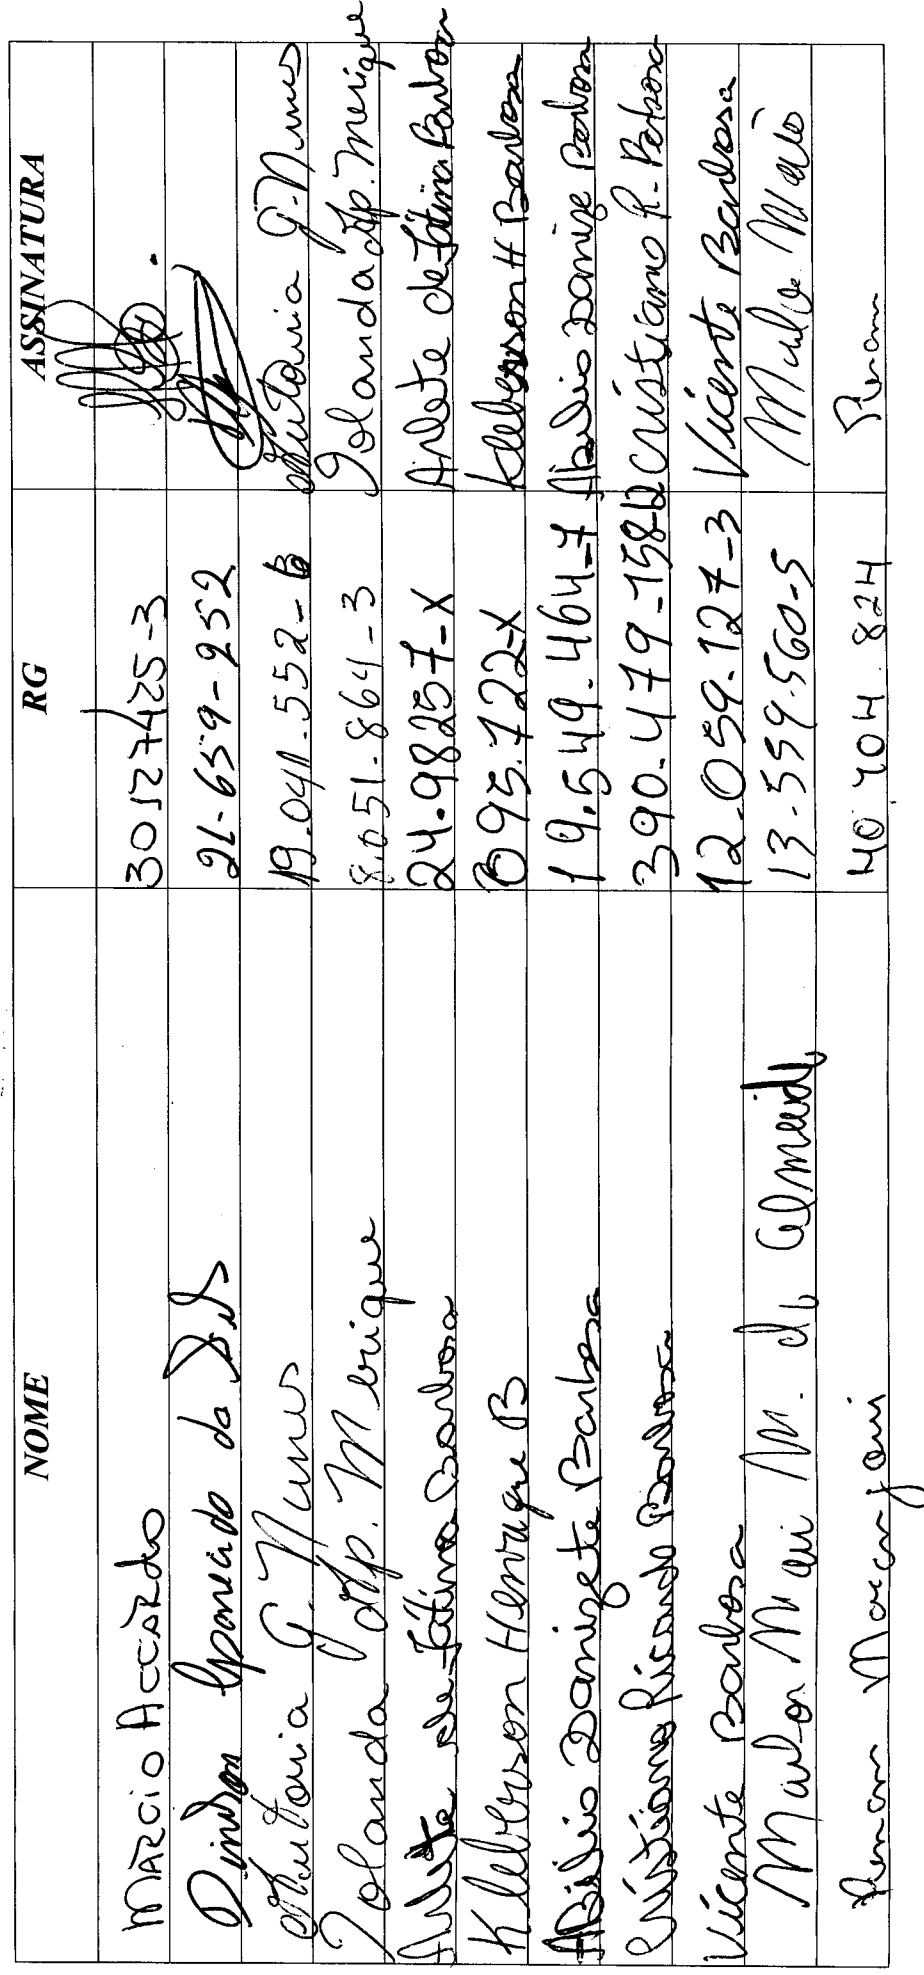 NOME RG ASSINATURA
MÁRCIO ACCARDO 30127425-3
Aparecido da 21-659-252
Antonia G. Nunes 19.041.552-6 Antonia G. Nunes
Iolanda Ap. Merique 8.051.864-3 Iolanda Ap. Merique
Arlete de Fátima Barbosa 24.98257-X Arlete de Fátima Barbosa
Kleberson Henrique B 095.722-X Kleberson H Barbosa
ABilio Danizete Barbosa 19.549.464-7 Abilio Danize Barbosa
Cristiano Ricardo Barbosa 390.479-158 Cristiano R. Barbosa
Vicente Barbosa 12.059.127-3 Vicente Barbosa
M. de Almeida 13.559.560-5
Renan 40 404.824 Renan